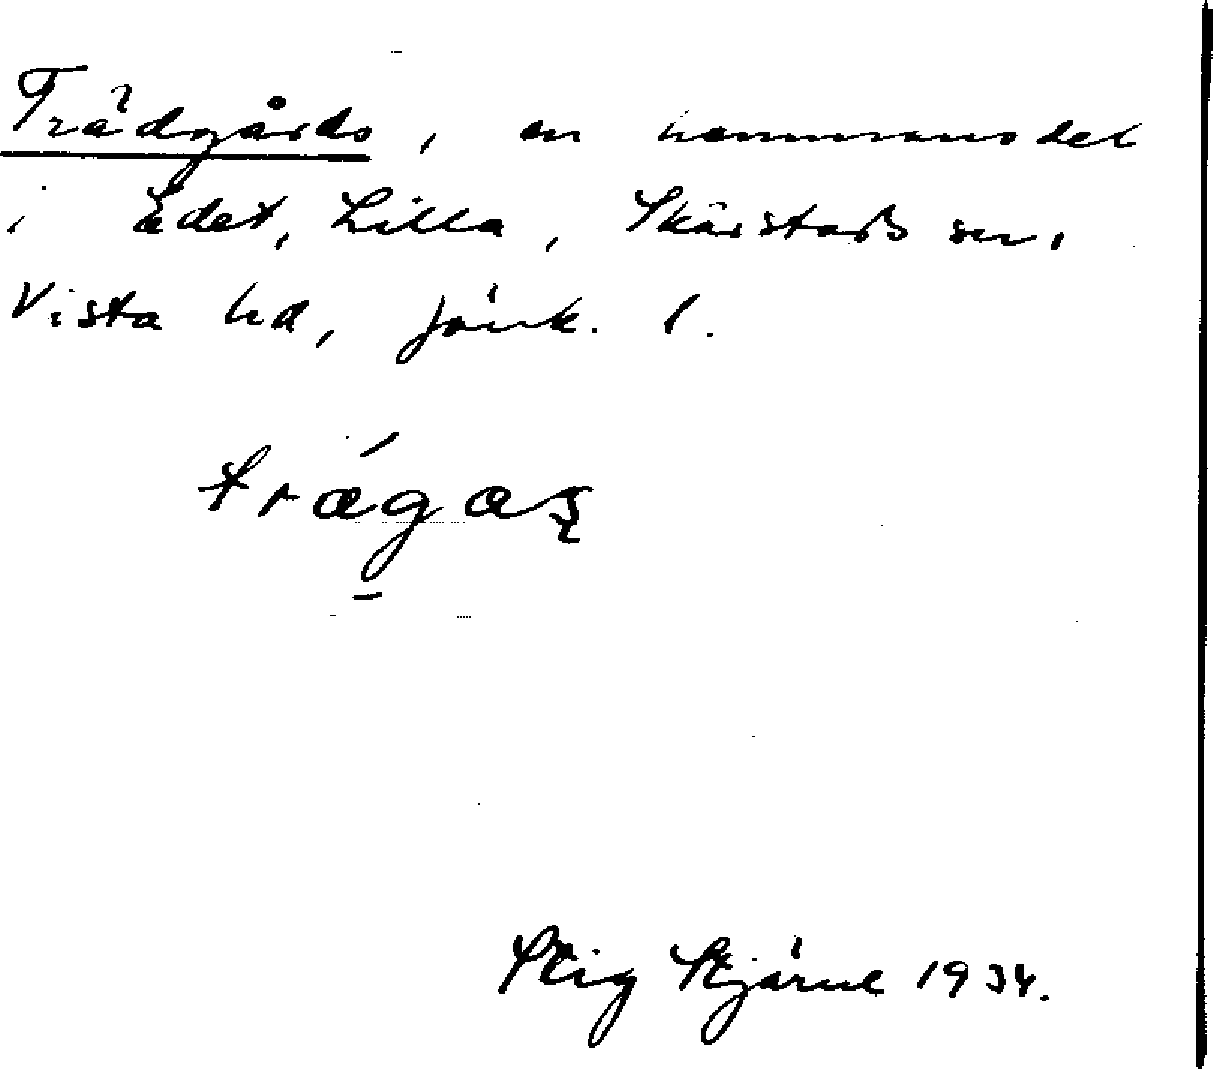 Trädgårds, en hemmansdel
i Edet, Lilla, Skärstads sn,
Vista hd, Jönk. l.
trægaʂ
Stig Stjärne 1934.